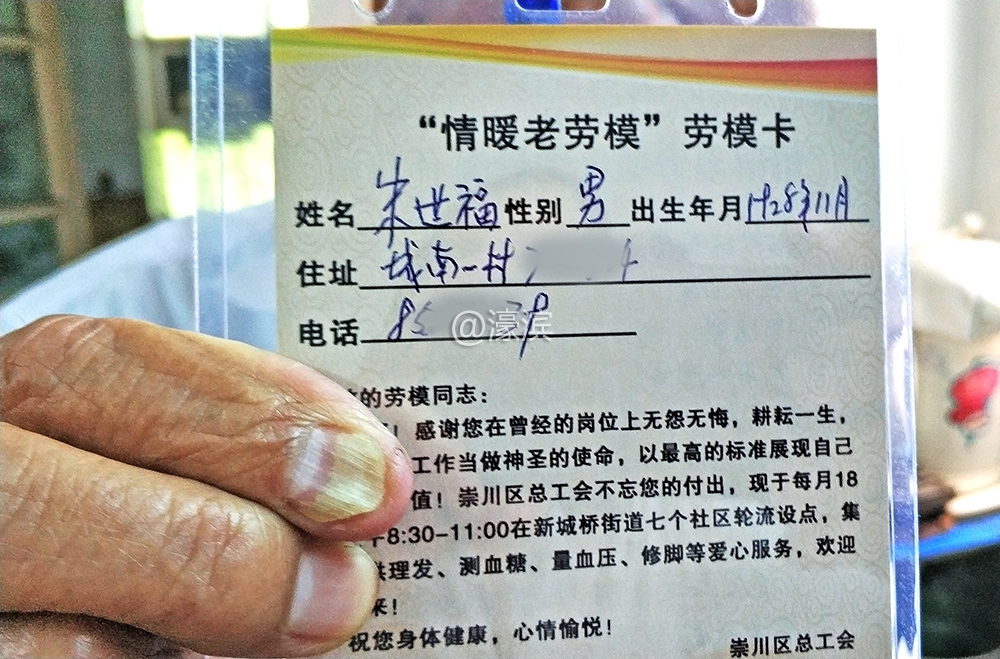 “情暖老劳模”劳模卡
姓名 朱世福 性别 男 出生年月 1928年11月
住址 城南一村
电话 85
@濠滨
的劳模同志:
！感谢您在曾经的岗位上无怨无悔，耕耘一生，
工作当做神圣的使命，以最高的标准展现自己
值！崇川区总工会不忘您的付出，现于每月18
8:30-11:00在新城桥街道七个社区轮流设点，集
理发、测血糖、量血压、修脚等爱心服务，欢迎
来！
祝您身体健康，心情愉悦！
崇川区总工会